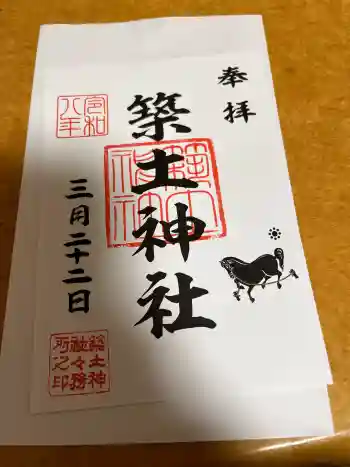 奉拝
築土神社
令和
八年
三月二十二日
築土神
社々務
所之印
築土
神社